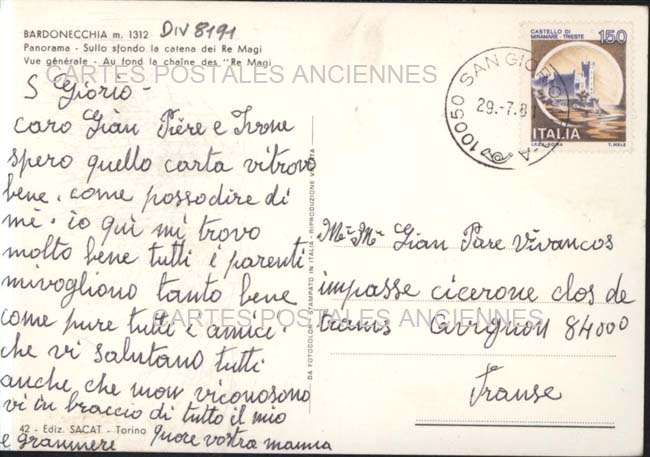 BARDONECCHIA m. 1312 DIV 8191
Panorama - Sullo sfondo la catena dei Re Magi
Vue générale - Au fond la chaîne des "Re Magi
CARTES POSTALES ANCIENNES
S Giorio -
caro Gian Piere e Ivone
spero quello carta vitrovo
bene. come possodire di
mè. io qui mi trovo
molto bene tutti i parenti
mivogliono tanto bene
come pure tutti i amici.
che vi salutano tutti
anche che non viconosono
vi in braccio di tutto il mio
e grammere quore vostra mamma
42 - Ediz. SACAT - Torino
DA FOTOCOLOR - STAMPATO IN ITALIA - RIPRODUZIONE VIETATA
CASTELLO DI
MIRAMARE - TRIESTE
150
ITALIA
I.P.Z.S. ROMA T. MELE
10050 SAN GIORIO
29.-7.8
Mr Me Gian Pare Vivancos
impasse cicerone clos de
trams Avignon 84000
Franse
CARTES POSTALES ANCIENNES